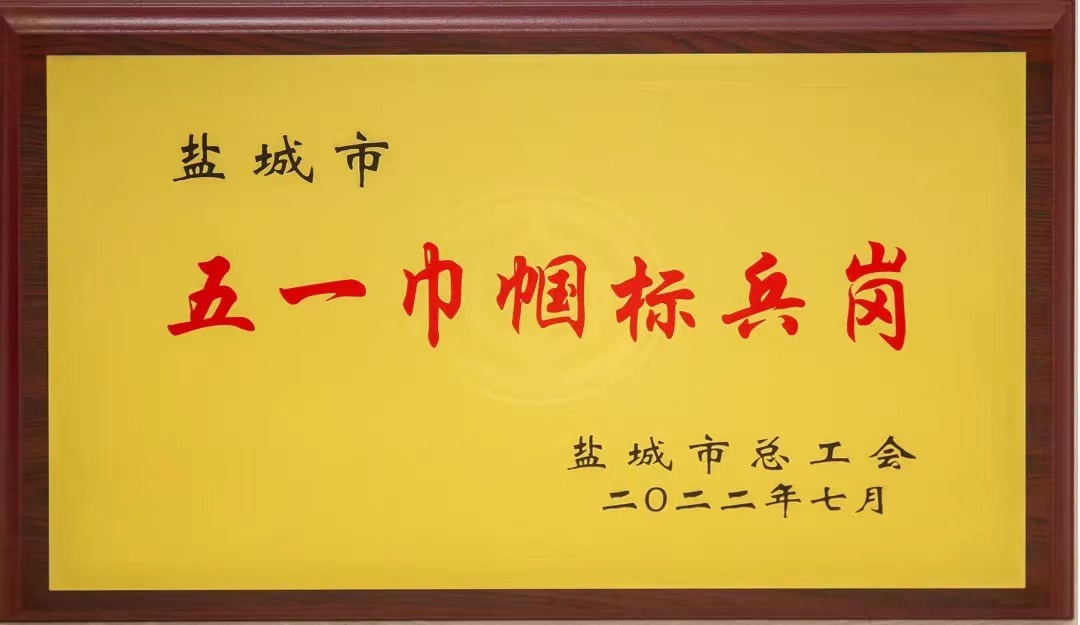 盐城市
五一巾帼标兵岗
盐城市总工会
二〇二二年七月